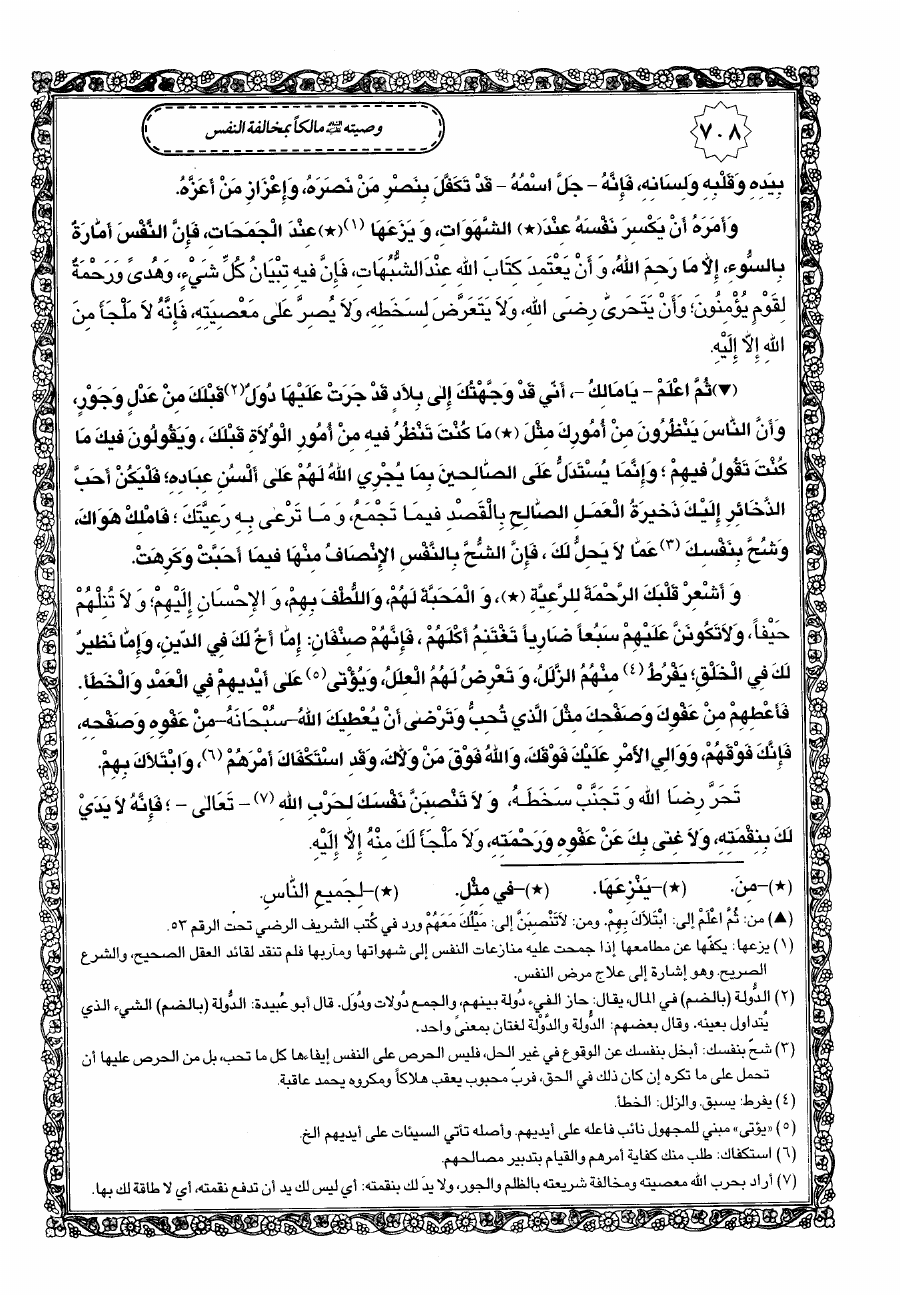 ٧٠٨
وصيته عليه السلام مالكاً بمخالفة النفس
بِيَدِهِ وَقَلْبِهِ وَلِسَانِهِ، فَإِنَّهُ - جَلَّ اسْمُهُ - قَدْ تَكَفَّلَ بِنَصْرِ مَنْ نَصَرَهُ، وَإِعْزَازِ مَنْ أَعَزَّهُ.
وَأَمَرَهُ أَنْ يَكْسِرَ نَفْسَهُ عِنْدَ(★) الشَّهَوَاتِ، وَيَزَعَهَا (١)(★)عِنْدَ الْجَمَحَاتِ، فَإِنَّ النَّفْسَ أَمَّارَةٌ
بِالسُّوءِ، إِلاَّ مَا رَحِمَ اللهُ، وَ أَنْ يَعْتَمِدَ كِتَابَ اللهِ عِنْدَ الشُّبُهَاتِ، فَإِنَّ فِيهِ تِبْيَانَ كُلِّ شَيْءٍ، وَهُدىً وَرَحْمَةً
لِقَوْمٍ يُؤْمِنُونَ؛ وَأَنْ يَتَحَرَّى رِضَى اللهِ، وَلاَ يَتَعَرَّضَ لِسَخَطِهِ، وَلاَ يُصِرَّ عَلى مَعْصِيَتِهِ، فَإِنَّهُ لاَ مَلْجَأَ مِنَ
اللهِ إِلاَّ إِلَيْهِ.
(▼)ثُمَّ اعْلَمْ - يَامَالِكُ -، أَنّي قَدْ وَجَّهْتُكَ إِلى بِلاَدٍ قَدْ جَرَتْ عَلَيْهَا دُوَلٌ(٢)قَبْلَكَ مِنْ عَدْلٍ وَجَوْرٍ،
وَأَنَّ النَّاسَ يَنْظُرُونَ مِنْ أُمُورِكَ مِثْلَ (★) مَا كُنْتَ تَنْظُرُ فِيهِ مِنْ أُمُورِ الْوُلاَةِ قَبْلَكَ، وَيَقُولُونَ فِيكَ مَا
كُنْتَ تَقُولُ فِيهِمْ؛ وَإِنَّمَا يُسْتَدَلُّ عَلَى الصَّالِحينَ بِمَا يُجْرِي اللهُ لَهُمْ عَلى أَلْسُنِ عِبَادِهِ؛ فَلْيَكُنْ أَحَبَّ
الذَّخَائِرِ إِلَيْكَ ذَخيرَةُ الْعَمَلِ الصَّالِحِ بِالْقَصْدِ فيمَا تَجْمَعُ، وَمَا تَرْعى بِهِ رَعِيَّتَكَ؛ فَامْلِكْ هَوَاكَ،
وَشُحَّ بِنَفْسِكَ (٣)عَمَّا لاَ يَحِلُّ لَكَ، فَإِنَّ الشُّحَّ بِالنَّفْسِ الإِنْصَافُ مِنْهَا فيمَا أَحَبَّتْ وَكَرِهَتْ.
وَ أَشْعِرْ قَلْبَكَ الرَّحْمَةَ لِلرَّعِيَّةِ (★)، وَ الْمَحَبَّةَ لَهُمْ، وَاللُّطْفَ بِهِمْ، وَ الإِحْسَانَ إِلَيْهِمْ؛ وَ لاَ تُنِلْهُمْ
حَيْفاً، وَلاَتَكُونَنَّ عَلَيْهِمْ سَبُعاً ضَارِياً تَغْتَنِمُ أَكْلَهُمْ، فَإِنَّهُمْ صِنْفَانِ: إِمَّا أَخٌ لَكَ فِي الدّينِ، وَإِمَّا نَظيرٌ
لَكَ فِي الْخَلْقِ؛ يَفْرُطُ (٤) مِنْهُمُ الزَّلَلُ، وَ تَعْرِضُ لَهُمُ الْعِلَلُ، وَيُؤْتى(٥) عَلى أَيْديهِمْ فِي الْعَمْدِ وَالْخَطَأِ.
فَأَعْطِهِمْ مِنْ عَفْوِكَ وَصَفْحِكَ مِثْلَ الَّذي تُحِبُّ وَتَرْضى أَنْ يُعْطِيَكَ اللهُ-سُبْحَانَهُ-مِنْ عَفْوِهِ وَصَفْحِهِ،
فَإِنَّكَ فَوْقَهُمْ، وَوَالِي الأَمْرِ عَلَيْكَ فَوْقَكَ، وَاللهُ فَوْقَ مَنْ وَلاَّكَ، وَقَدِ اسْتَكْفَاكَ أَمْرَهُمْ (٦)، وَابْتَلاَكَ بِهِمْ.
تَحَرَّ رِضَا اللهِ وَ تَجَنَّبْ سَخَطَهُ، وَ لاَ تَنْصِبَنَّ نَفْسَكَ لِحَرْبِ اللهِ (٧) - تَعَالى - ؛ فَإِنَّهُ لاَ يَدَيْ
لَكَ بِنِقْمَتِهِ، وَلاَ غِنى بِكَ عَنْ عَفْوِهِ وَرَحْمَتِهِ، وَلاَ مَلْجَأَ لَكَ مِنْهُ إِلاَّ إِلَيْهِ.
(★)-مِنَ. (★)-يَنْزِعَهَا. (★)-في مِثْلِ. (★)-لِجَميعِ النَّاسِ.
(▲) من: ثُمَّ اعْلَمْ إلى: ابْتَلاَكَ بِهِمْ. ومن: لاَتَنْصِبَنَّ إلى: مَيْلُكَ مَعَهُمْ ورد في كُتب الشريف الرضي تحت الرقم ٥٣.
(١) يزعها: يكفّها عن مطامعها إذا جمحت عليه منازعات النفس إلى شهواتها ومآربها فلم تنقد لقائد العقل الصحيح، والشرع
الصريح. وهو إشارة إلى علاج مرض النفس.
(٢) الدُّولة (بالضم) في المال، يقال: حاز الفيء دُولة بينهم، والجمع دُولات ودُوَل. قال أبو عُبيدة: الدُّولة (بالضم) الشيء الذي
يُتداول بعينه. وقال بعضهم: الدُّولة والدَّوْلة لغتان بمعنىً واحد.
(٣) شحّ بنفسك: أبخل بنفسك عن الوقوع في غير الحل، فليس الحرص على النفس إيفاءها كل ما تحب، بل من الحرص عليها أن
تحمل على ما تكره إن كان ذلك في الحق، فربّ محبوب يعقب هلاكاً ومكروه يحمد عاقبة.
(٤) يفرط: يسبق. والزلل: الخطأ.
(٥) «يؤتى» مبني للمجهول نائب فاعله على أيديهم. وأصله تأتي السيئات على أيديهم الخ.
(٦) استكفاك: طلب منك كفاية أمرهم والقيام بتدبير مصالحهم.
(٧) أراد بحرب الله معصيته ومخالفة شريعته بالظلم والجور، ولا يدَ لك بنقمته: أي ليس لك يد أن تدفع نقمته، أي لا طاقة لك بها.